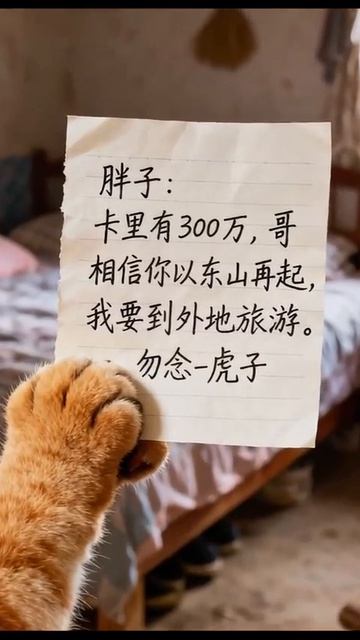 胖子：
卡里有300万，哥
相信你以东山再起，
我要到外地旅游。
勿念-虎子